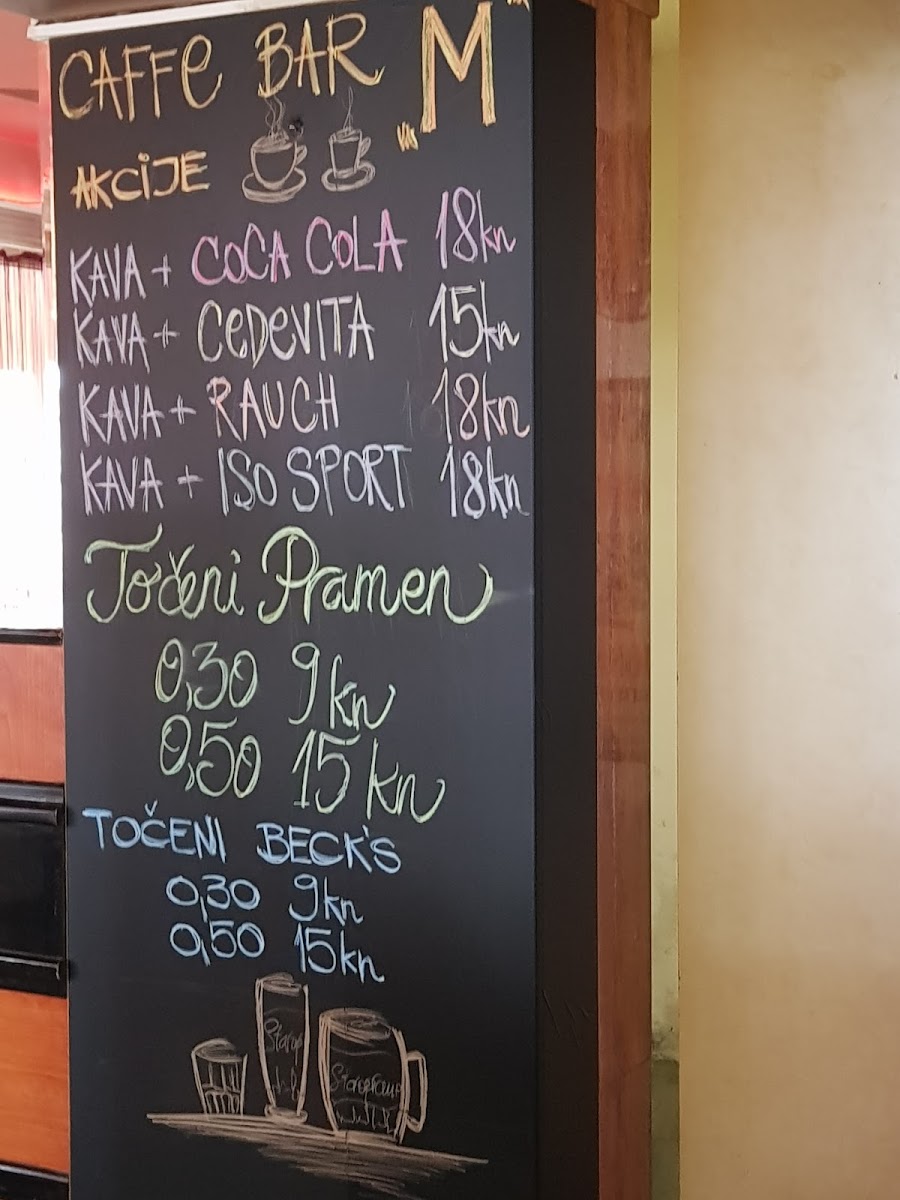 CAFFE BAR "M"
AKCIJE
KAVA + COCA COLA 18kn
KAVA + CEDEVITA 15kn
KAVA + RAUCH 18kn
KAVA + ISO SPORT 18kn
Točeni Pramen
0,30 9kn
0,50 15kn
TOČENI BECK'S
0,30 9kn
0,50 15kn